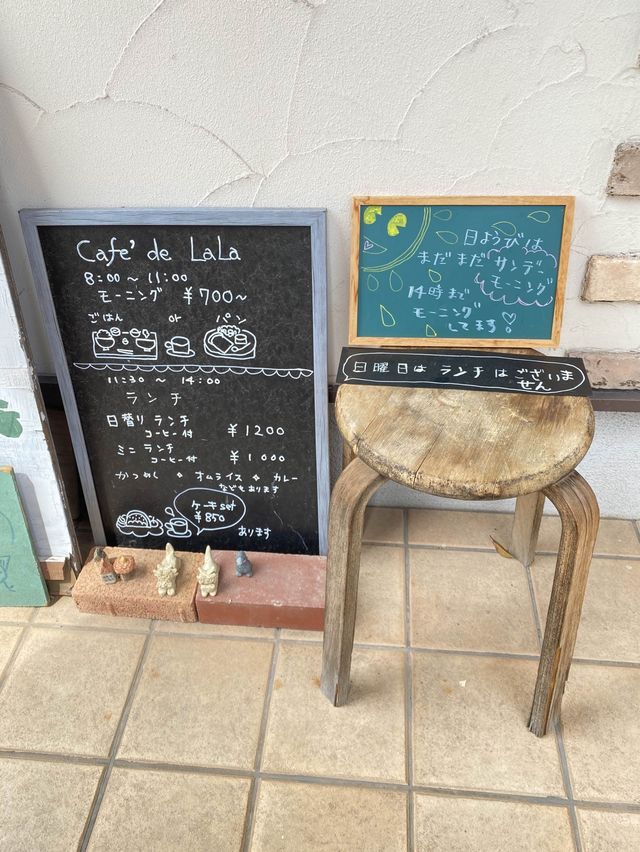 Cafe' de LaLa
8:00〜11:00
モーニング ¥700〜
ごはん or パン
11:30〜14:00
ランチ
日替り ランチ
コーヒー付 ¥1200
ミニ ランチ
コーヒー付 ¥1000
かつめし オムライス カレー
などもあります
ケーキset
¥850
あります
日ようびは
まだまだ サンデー
モーニング
14時まで
モーニング
してます!
日曜日は ランチ は ございま
せん